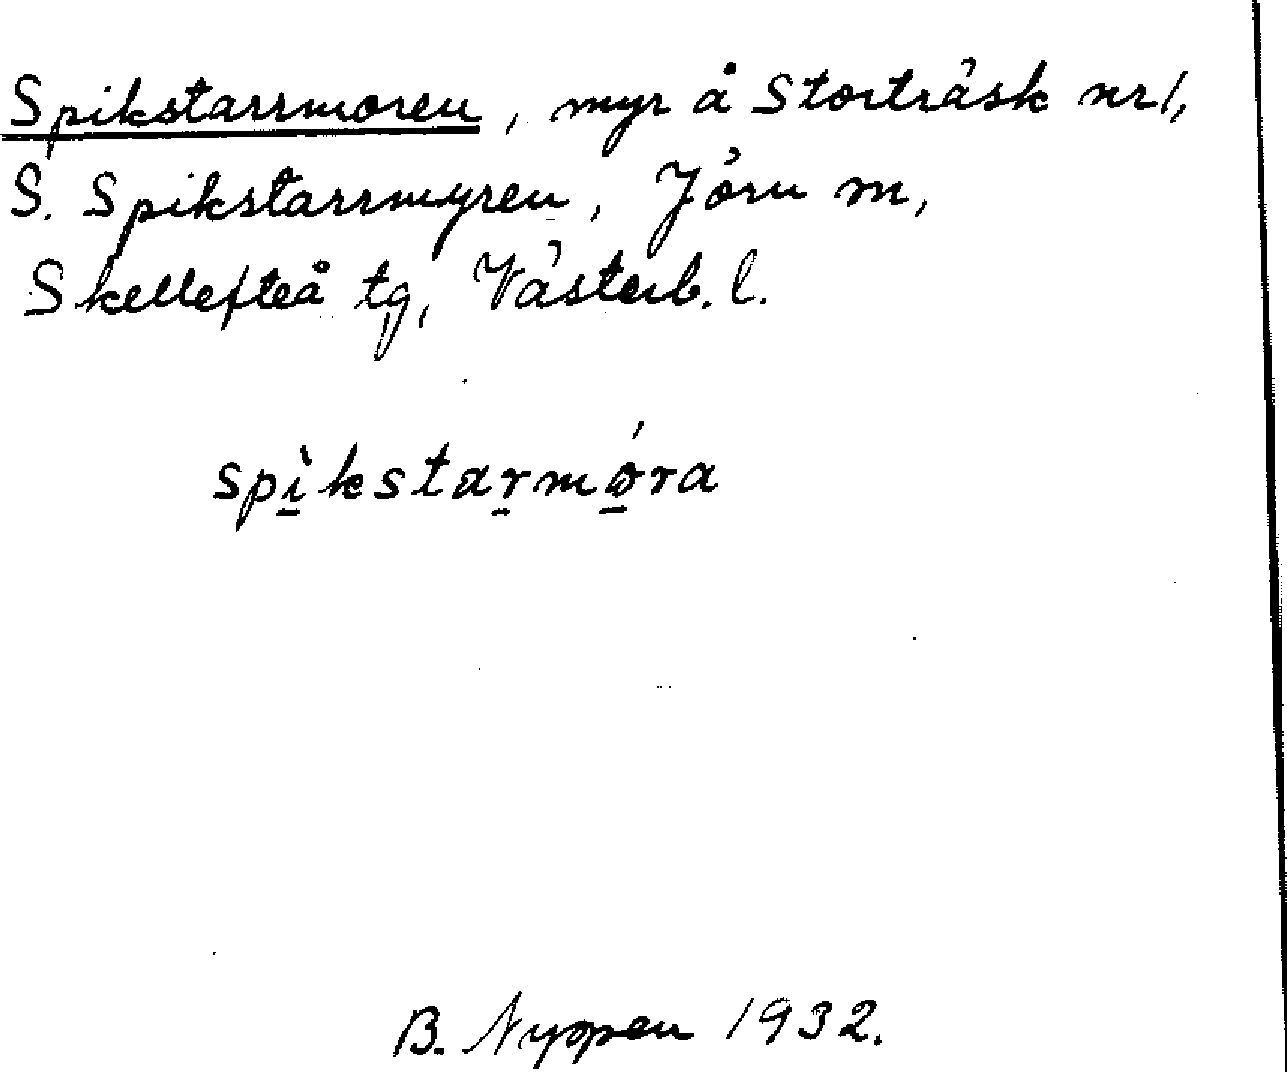 Spikstarrmoren, myr å Storträsk nr 1,
S. Spikstarrmyren, Jörn m,
Skellefteå tg, Västerb. l.
spı̱̀kstaṟmó̱ra
B. Nyppen 1932.